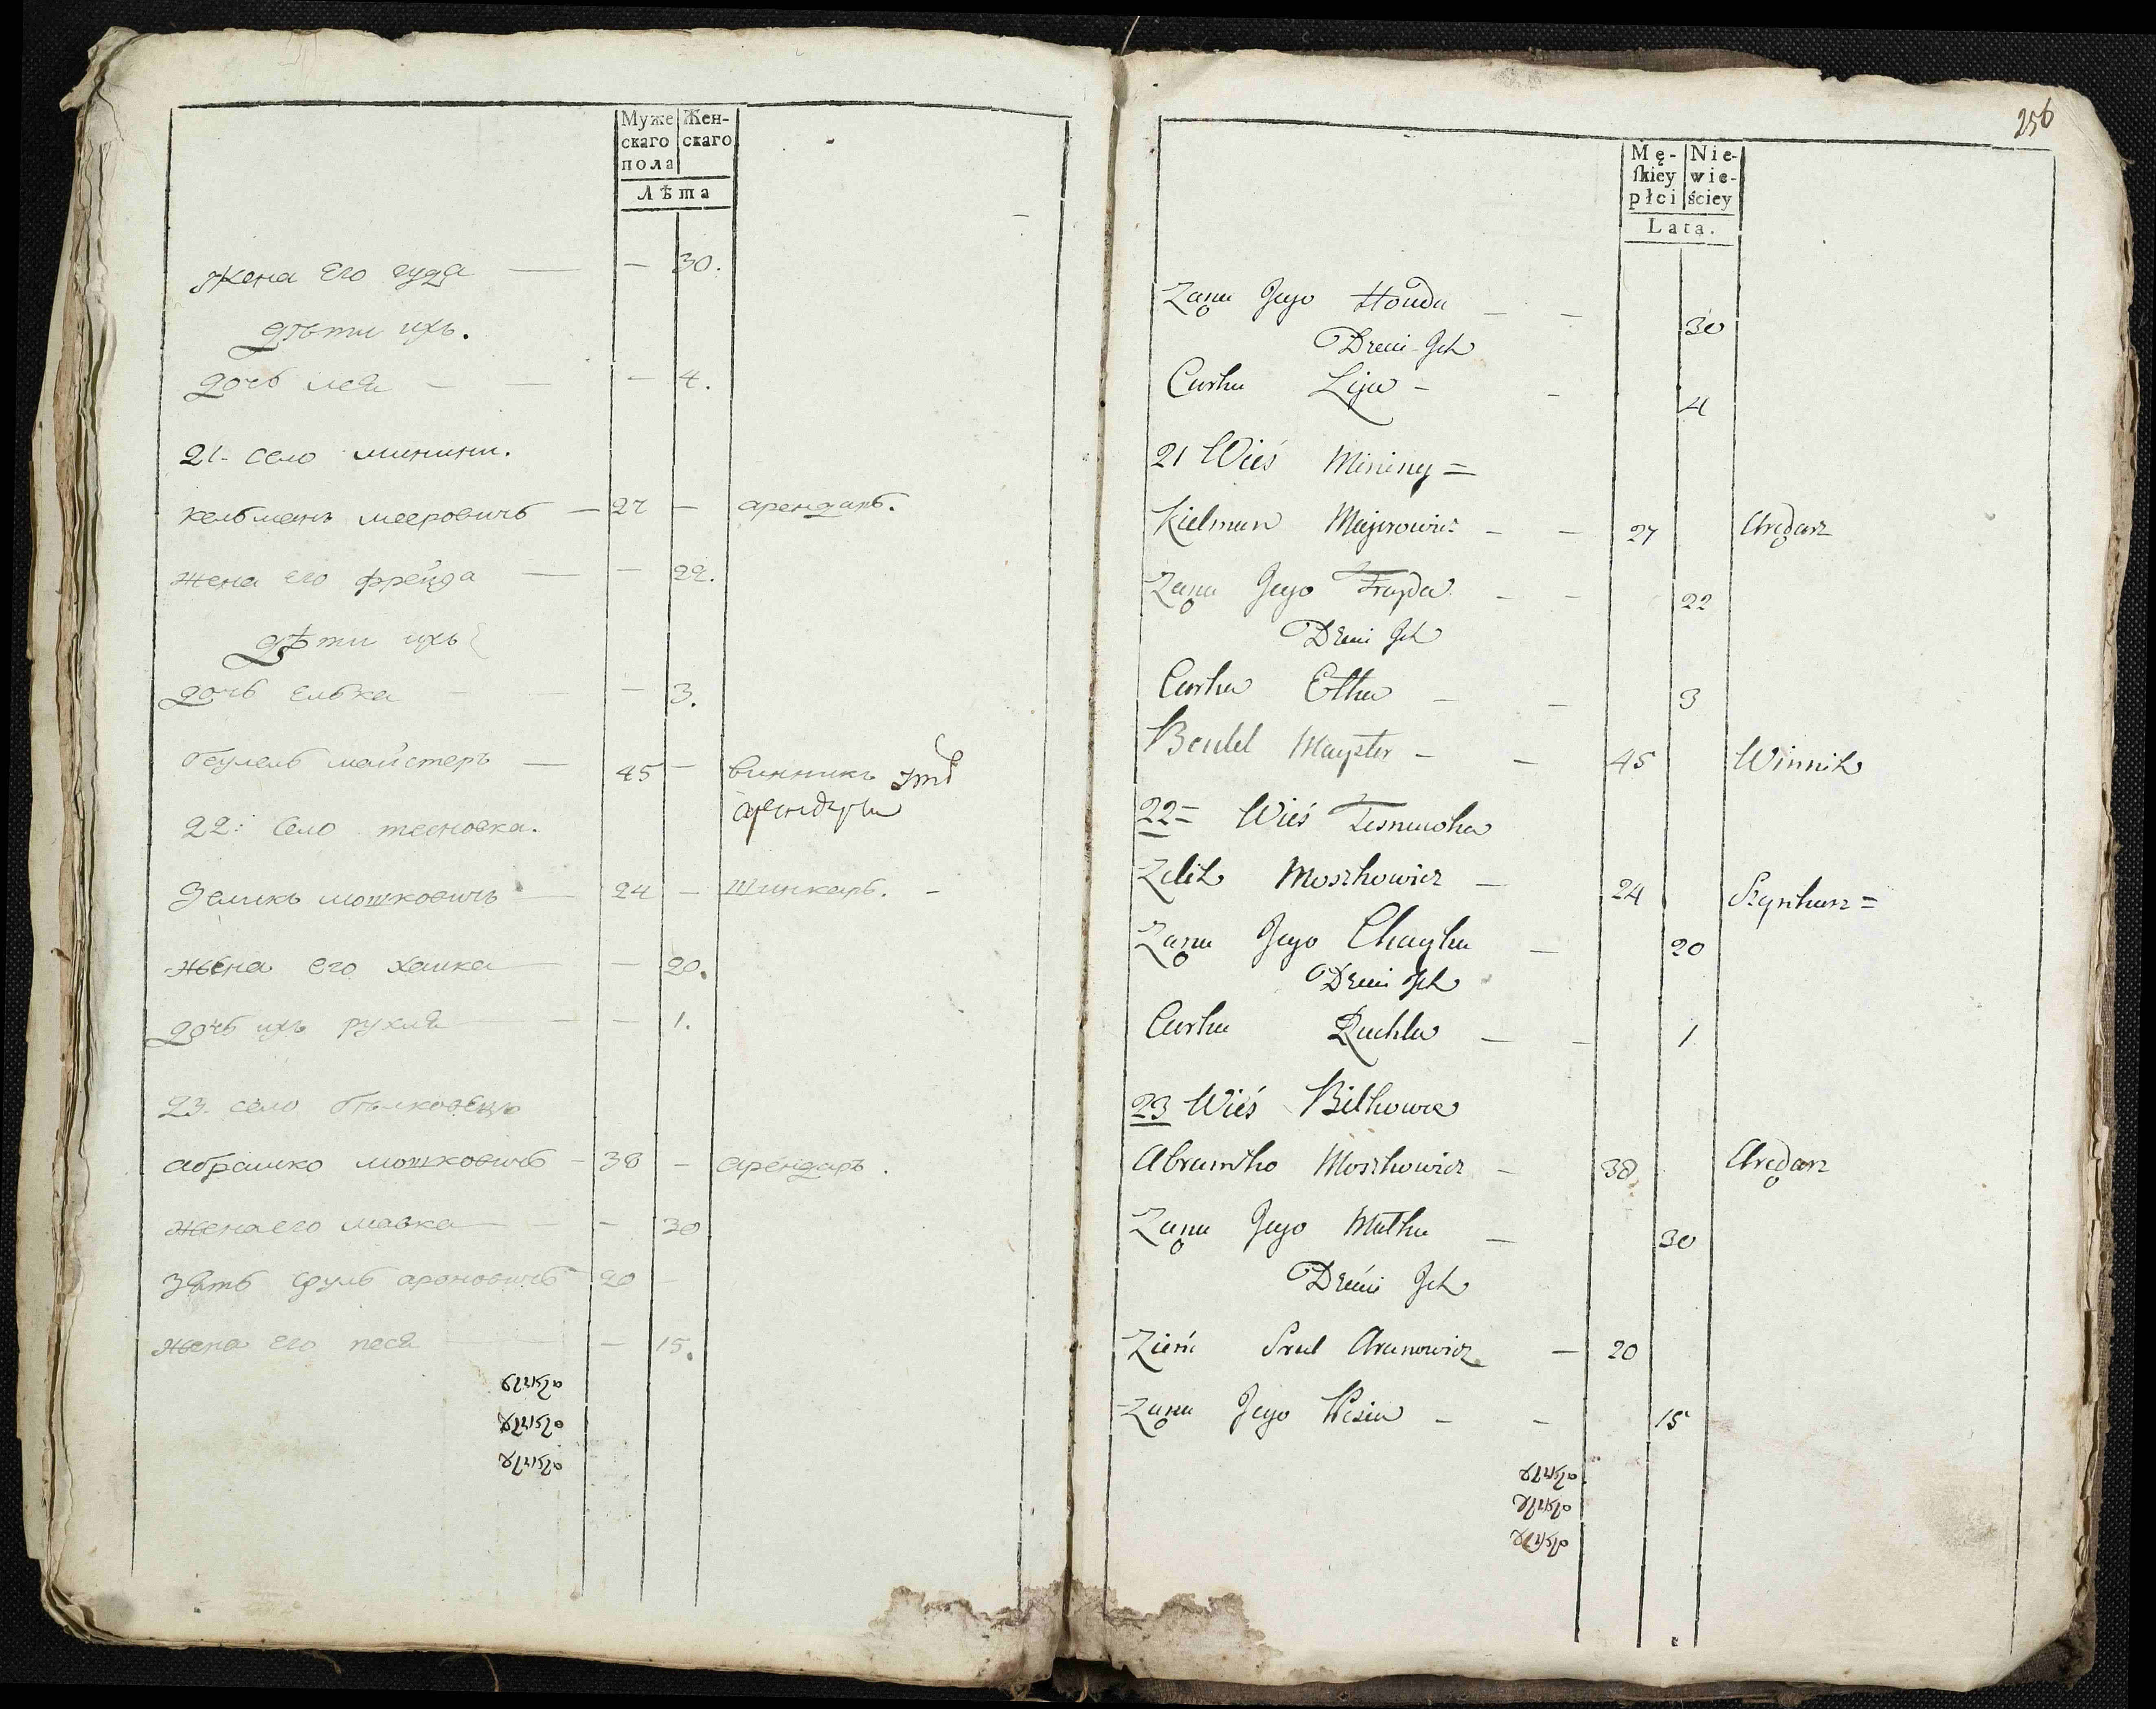 Муже Жен-
скаго скаго
пола
Лѣта
Жена его гудя — — 30.
дѣти ихъ.
дочь лея — — — 4.
21. село минини.
кельманъ мееровичь — 27 — арендарь.
жена его фрейда — — 22.
дѣти ихъ
дочь елька — — — 3.
беулель майстеръ — 45 — винникъ
арендары
22: село тесновка.
Зеликъ мошковичъ — 24 — шинкарь. —
жена его хаика — — 20.
дочь ихъ рухля — — — 1.
23. село бѣлковцы
абрамко мошковичь — 38 — арендарь.
жена его малка — — — 30
Зять сруль ароновичь 20 —
жена его песя — — 15.
256
Mę- Nie-
ſkiey wie-
płci ściey
Lata.
Zona Jego Houda — — 30
Dzieci Ich
Curka Lija — — 4
21 Wieś Mininy =
Kielman Majorowicz — — 27 Arędarz
Zona Jego Frayda — — 22
Dzieci Ich
Curka Elka — — 3
Beulel Mayster — — 45 Winnik
22= Wieś Tesnowka
Zelik Moszkowicz — 24 Szynkarz =
Zona Jego Chayka — 20
Dzieci Ich
Curka Ruchla — — 1
23 Wieś Bilkowce
Abramko Moszkowicz — 38 Arędarz
Zona Jego Malka — 30
Dzieci Ich
Zieńć Srul Aranowicz — 20
Zona Jego Pesia — — 15